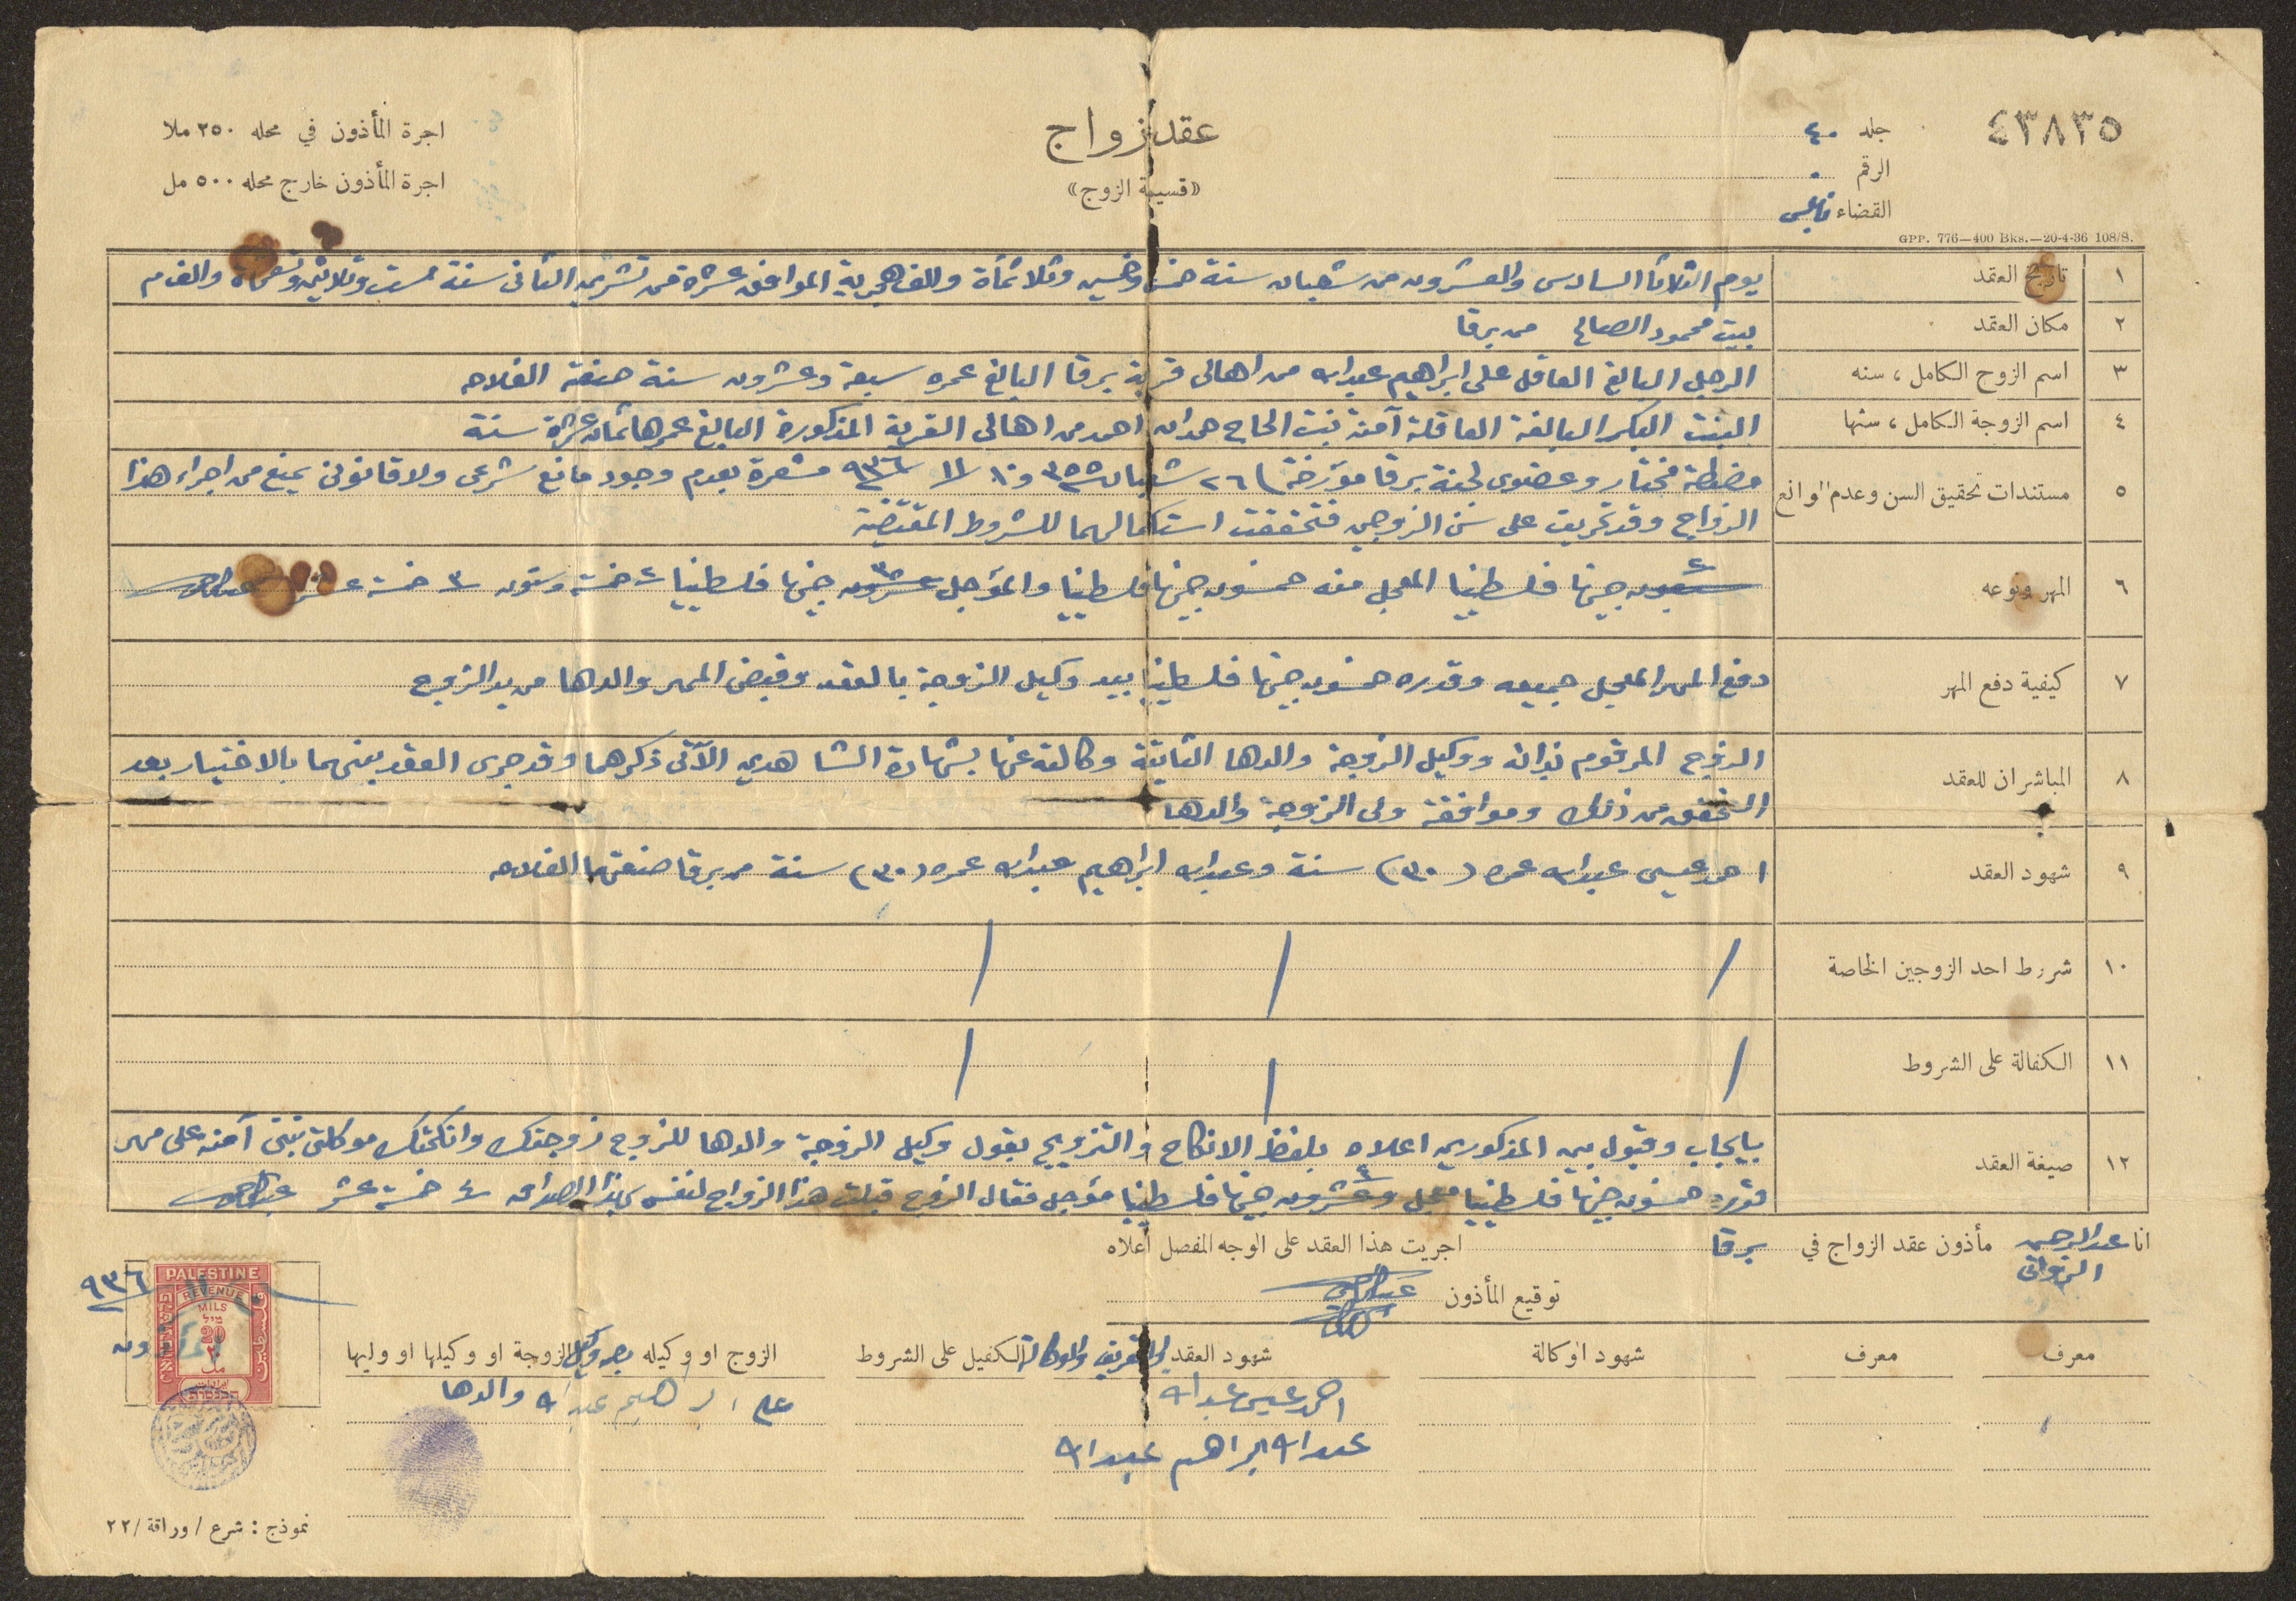 ٤٣٨٣٥
جلد ٤٠
الرقم ٠
القضاء نابلس
عقد زواج
«قسيمة الزوج»
اجرة المأذون في محله ٢٥٠ ملا
اجرة المأذون خارج محله ٥٠٠ مل
GPP. 776—400 Bks.—20-4-36 108/S.
١ تاريخ العقد
يوم الثلاثا السادس والعشرون من شعبان سنة خمس وخمسين وثلاثمأة والف هجرية الموافق عشرة من تشرين الثاني سنة ست وثلاثين وتسعمأة والف م
٢ مكان العقد
بيت محمود الصالح من برقا
٣ اسم الزوج الكامل ، سنه
الرجل البالغ العاقل علي ابراهيم عبدالله من اهالي قرية برقا البالغ عمره سبعة وعشرون سنة صنعته الفلاحه
٤ اسم الزوجة الكامل ، سنها
البنت البكر البالغة العاقلة آمنة بنت الحاج حمدان احمد من اهالي القرية المذكورة البالغ عمرها ثمان عشرة سنة
٥ مستندات تحقيق السن وعدم الموانع
مضبطة مختار وعضوي لجنة برقا مؤرخة ٢٦ شعبان ٣٥٥ و ١٠ / ١١ / ٩٣٦ مشعرة بعدم وجود مانع شرعي ولا قانوني يمنع من اجراء هذا
الزواج وقد تعرفت على سن الزوجين فتحققت استكمالهما للشروط المقتضية
٦ المهر ونوعه
سبعون جنيها فلسطينيا المعجل منه خمسون جنيها فلسطينيا والمؤجل عشرون جنيها فلسطينيا ٢ خمسة وستون ٣ خمسة عشر
٧ كيفية دفع المهر
دفع المهر المعجل جميعه وقدره خمسون جنيها فلسطينيا بيد وكيل الزوجة بالعقد وقبض المهر والدها من يد الزوج
٨ المباشران للعقد
الزوج المرقوم بذاته ووكيل الزوجة والدها الثابتة وكالته عنها بشهادة الشاهدين الآتي ذكرهما وقد جرى العقد بينهما بالاختيار بعد
التحقق من ذلك وموافقة ولي الزوجة والدها
٩ شهود العقد
احمد عيسى عبدالله عمره (٣٠) سنة وعبدالله ابراهيم عبدالله عمره (٣٠) سنة من برقا صنعتهما الفلاحه
١٠ شروط احد الزوجين الخاصة
١١ الكفالة على الشروط
١٢ صيغة العقد
بايجاب وقبول بين المذكورين اعلاه بلفظ الانكاح والتزويج بقول وكيل الزوجة والدها للزوج زوجتك وانكحتك موكلتي بنتي آمنة على مهر
قدره خمسون جنيها فلسطينيا معجل وعشرون جنيها فلسطينيا مؤجل فقال الزوج قبلت هذا الزواج لنفسي بهذا الصداق ٤ خمسة عشر
انا عبدالرحمن مأذون عقد الزواج في برقا اجريت هذا العقد على الوجه المفصل أعلاه
توقيع المأذون
معرف
معرف
شهود الوكالة
شهود العقد والتعريف والوكالة
الكفيل على الشروط
الزوج او وكيله
الزوجة او وكيلها او وليها
احمد عيسى عبدالله
عبدالله ابراهيم عبدالله
علي ابراهيم عبدالله
والدها
٩٣٦
PALESTINE
REVENUE
MILS
מיל
20
٢٠
مل
فلسطين
نموذج : شرع / وراقة / ٢٢